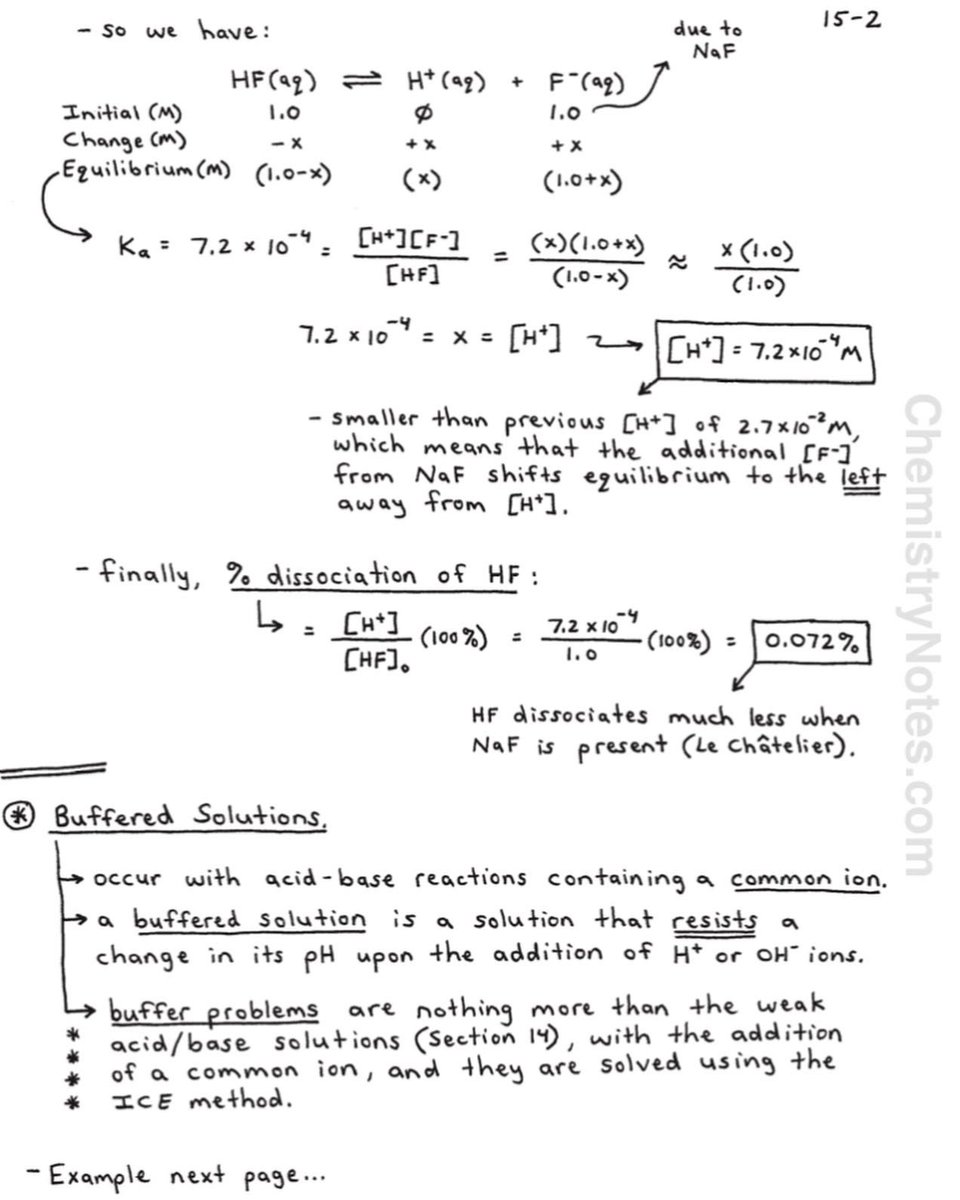 15-2
- so we have:
due to
NaF
HF(aq) ⇌ H⁺(aq) + F⁻(aq)
Initial (M) 1.0 ∅ 1.0
Change (M) -x +x +x
Equilibrium (M) (1.0-x) (x) (1.0+x)
Ka = 7.2 × 10⁻⁴ = [H⁺][F⁻]/[HF] = (x)(1.0+x)/(1.0-x) ≈ x(1.0)/(1.0)
7.2 × 10⁻⁴ = x = [H⁺] → [H⁺] = 7.2×10⁻⁴ M
- smaller than previous [H⁺] of 2.7×10⁻² M,
which means that the additional [F⁻]
from NaF shifts equilibrium to the left
away from [H⁺].
- finally, % dissociation of HF:
= [H⁺]/[HF]₀ (100%) = 7.2 × 10⁻⁴/1.0 (100%) = 0.072%
HF dissociates much less when
NaF is present (Le Châtelier).
⊛ Buffered Solutions.
→ occur with acid-base reactions containing a common ion.
→ a buffered solution is a solution that resists a
change in its pH upon the addition of H⁺ or OH⁻ ions.
→ buffer problems are nothing more than the weak
* acid/base solutions (Section 14), with the addition
* of a common ion, and they are solved using the
* ICE method.
*
- Example next page...
ChemistryNotes.com